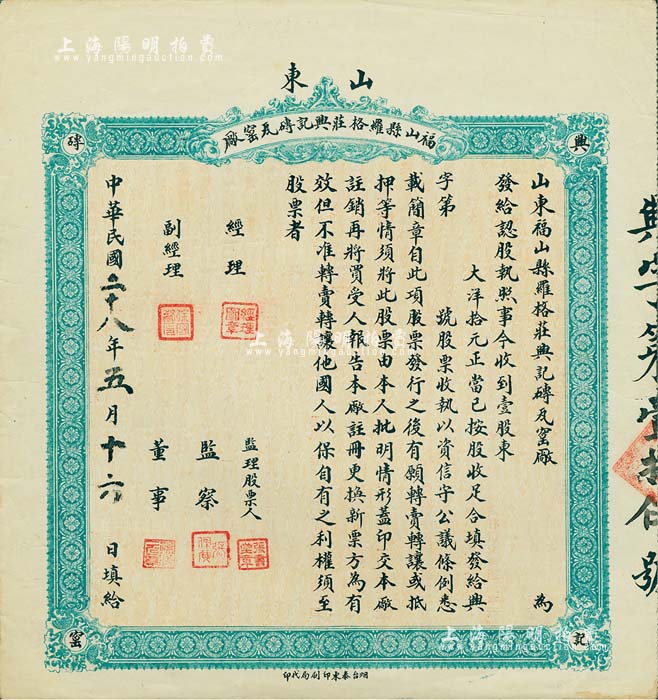 上海陽明拍賣
www.yangmingauction.com
山東
福山縣羅格莊興記磚瓦窰廠
興
記
磚
窰
山東福山縣羅格莊興記磚瓦窰廠 為
發給認股執照事今收到壹股東
大洋拾元正當已按股收足合填發給興
字第 號股票收執以資信守公議條例悉
載簡章自此項股票發行之後有願轉賣轉讓或抵
押等情須將此股票由本人批明情形蓋印交本廠
註銷再將買受人報告本廠註冊更換新票方為有
效但不准轉賣轉讓他國人以保自有之利權須至
股票者
經理
副經理
監理股票人
監察
董事
中華民國二十八年五月十六日填給
興字第壹拾 號
烟台泰東印刷局代印
上海陽明拍賣
www.yangmingauction.com
上海陽明拍賣
www.yangmingauction.com